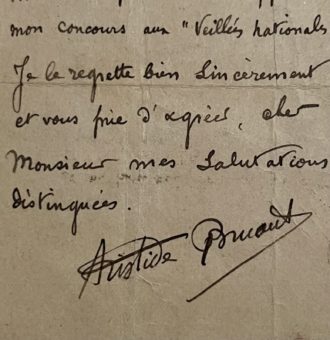 mon concours aux "Veillées nationales
Je le regrette bien sincèrement
et vous prie d'agréer, cher
Monsieur mes salutations
distinguées.
Aristide Bruant